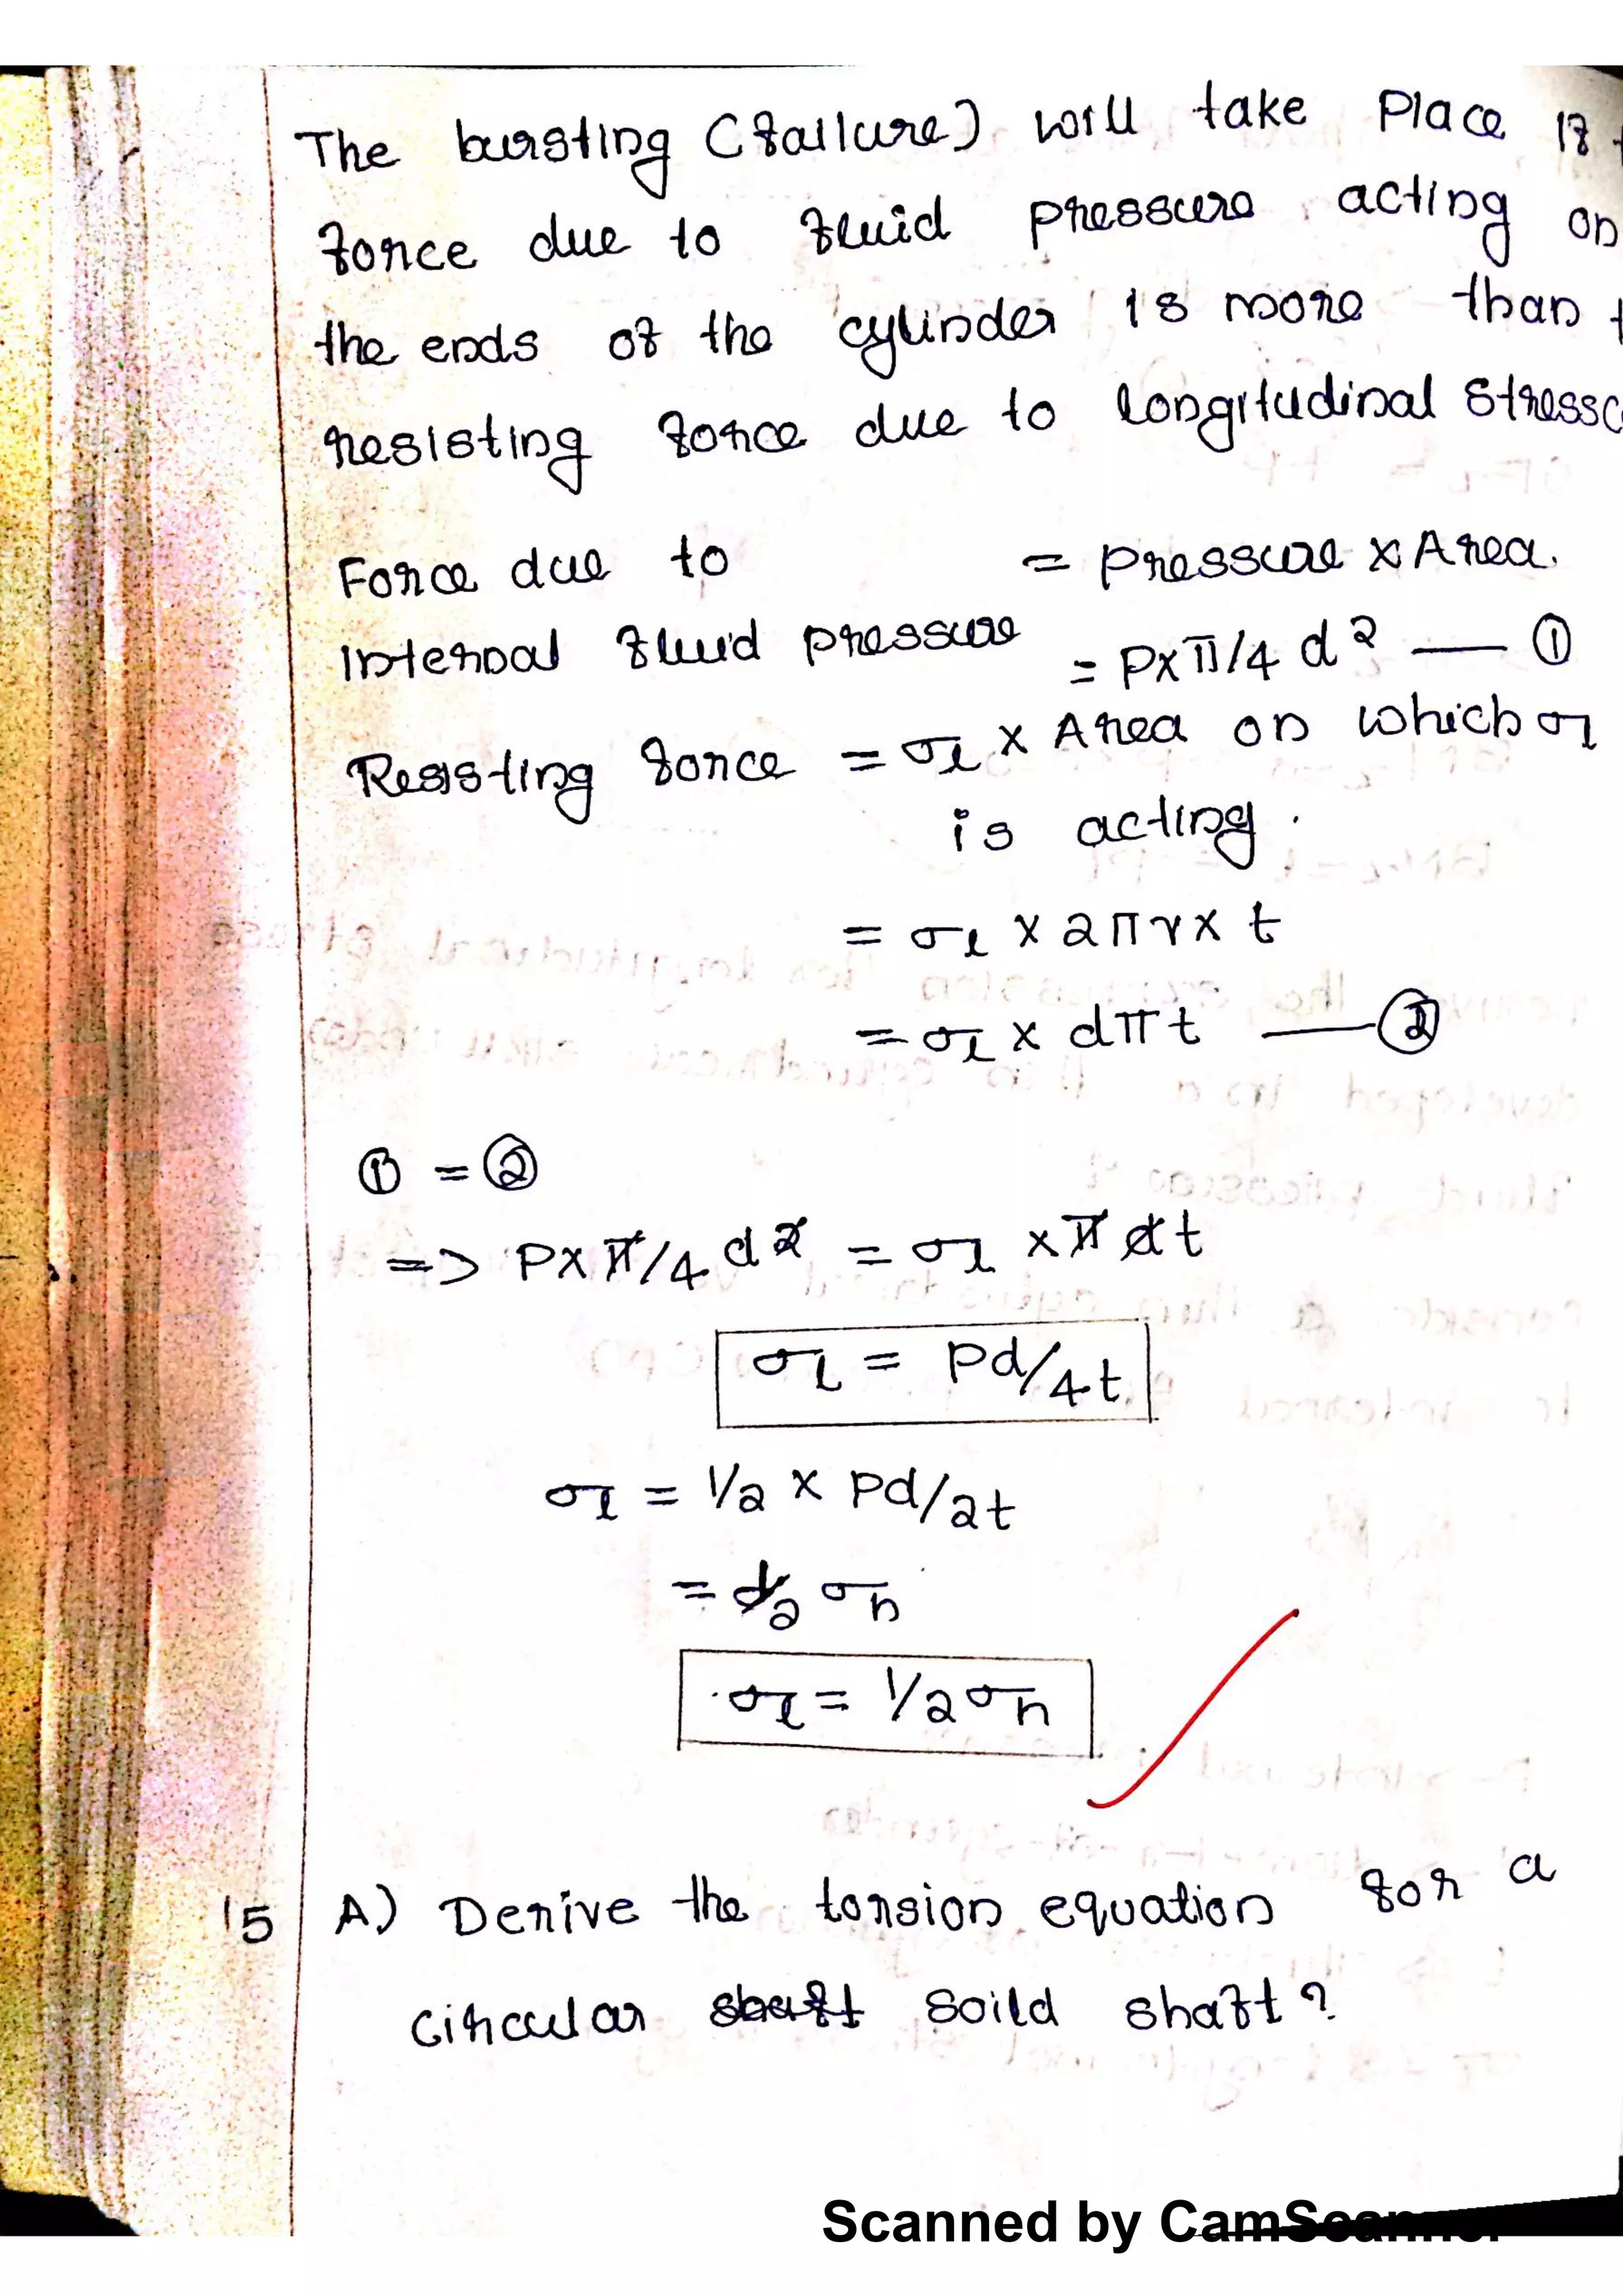 The bursting (failure) will take Place if
force due to fluid pressure acting on
the ends of the cylinder is more than
resisting force due to longitudinal
Force due to = pressure × Area.
internal fluid pressure = p×π/4 d² — ①
Resisting force = σl × Area on which σl
is acting.
= σl × 2πr× t
= σl × dπt — ②
① = ②
=> P×π/4 d² = σl ×π dt
σl = Pd/4t
σl = 1/2 × Pd/2t
= 1/2 σh
σl = 1/2 σh
15 A) Derive the torsion equation for a
circular shaft soild shaft?
Scanned by CamScanner